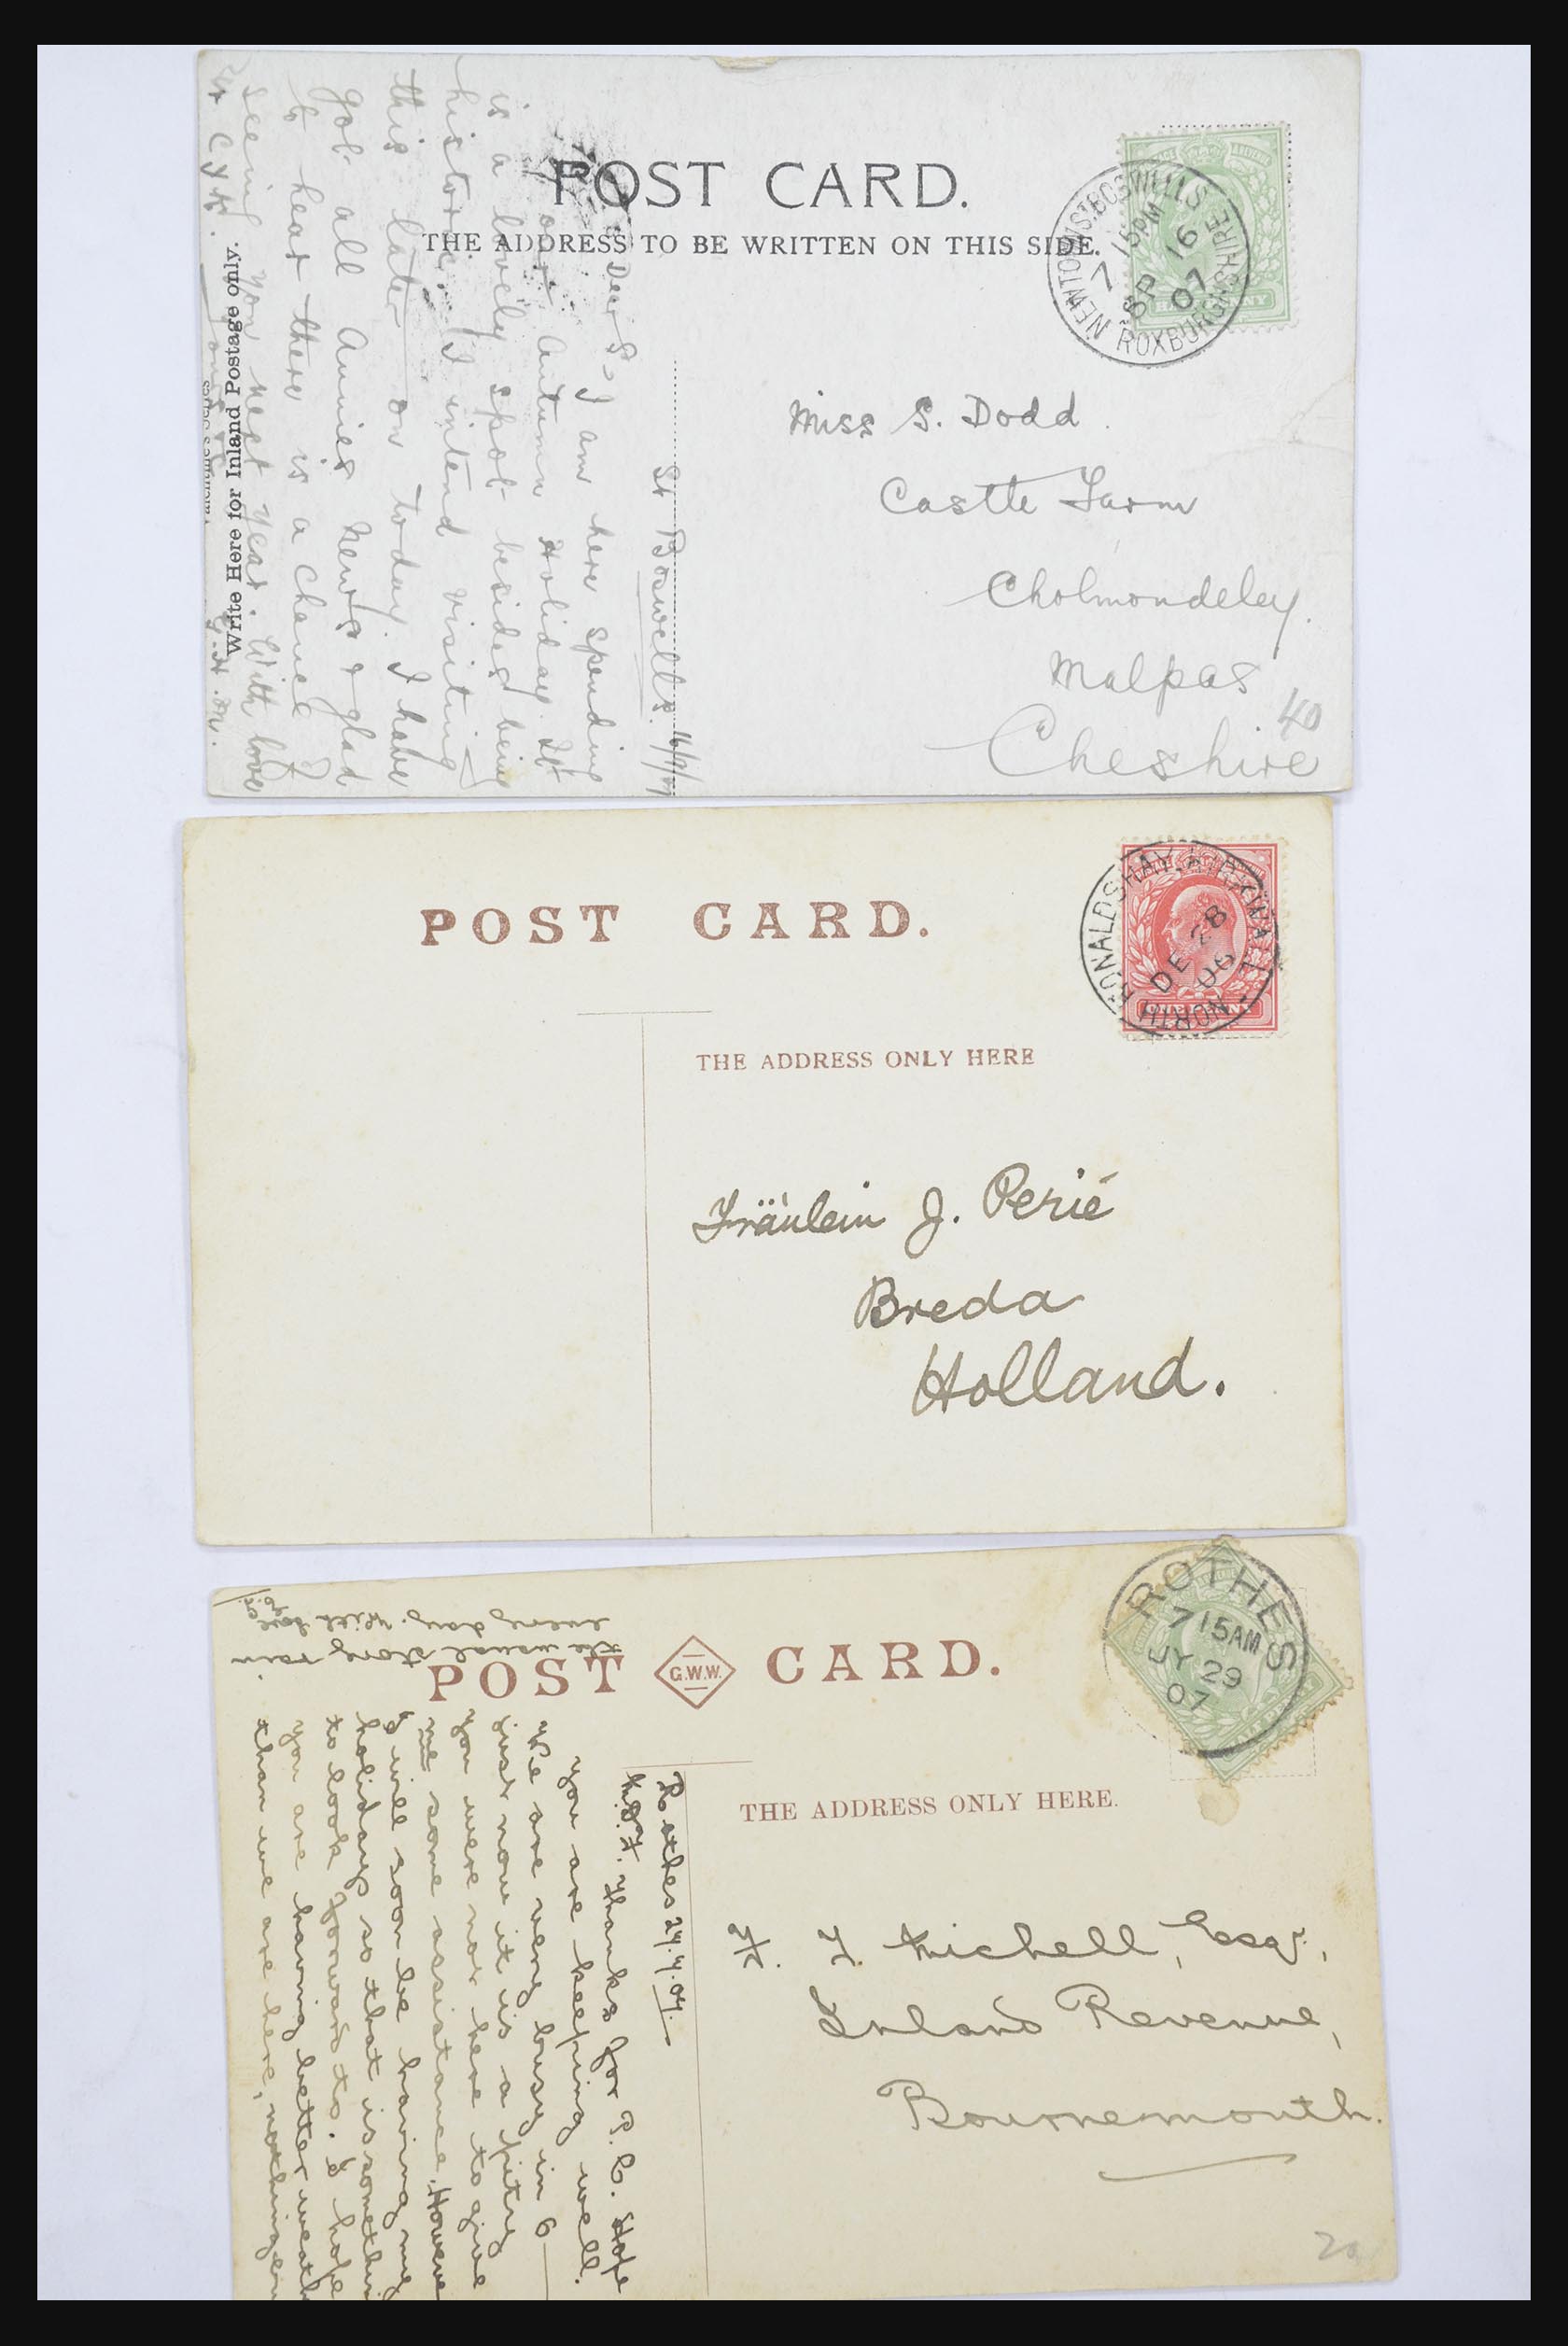 POST CARD.
THE ADDRESS TO BE WRITTEN ON THIS SIDE.
NEWTOWN ST. BOSWELLS
7 15PM
SP 16
07
ROXBURGHSHIRE
Miss S. Dodd
Castle Farm
Cholmondeley.
Malpas
Cheshire
40
St Boswells. 16/9/07
Dear S. I am here spending
our Autumn Holiday. It
is a lovely spot besides being
historic. I intend visiting
this later on today. I have
got all Annies news & glad
to hear there is a chance of
seeing you next year. With love
Write Here for Inland Postage only.
Valentine's Series
POST CARD.
NORTH RONALDSHAY, KIRKWALL
DE 28
06
THE ADDRESS ONLY HERE
Fräulein J. Perié
Breda
Holland.
POST G.W.W. CARD.
ROTHES
7 15AM
JY 29
07
THE ADDRESS ONLY HERE.
F. T. Michell, Esqr.,
Inland Revenue,
Bournemouth.
20
Rothes 29.7.07.
Thanks for P.C. Hope
you are keeping well.
We are very busy in 6
just now it is a pity
you were not here to give
me some assistance. However
I will soon be having my
holidays so that is somethin
to look forward to. I hope
you are having better weath
than we are here, nothing but
the usual story rain
every day. With love